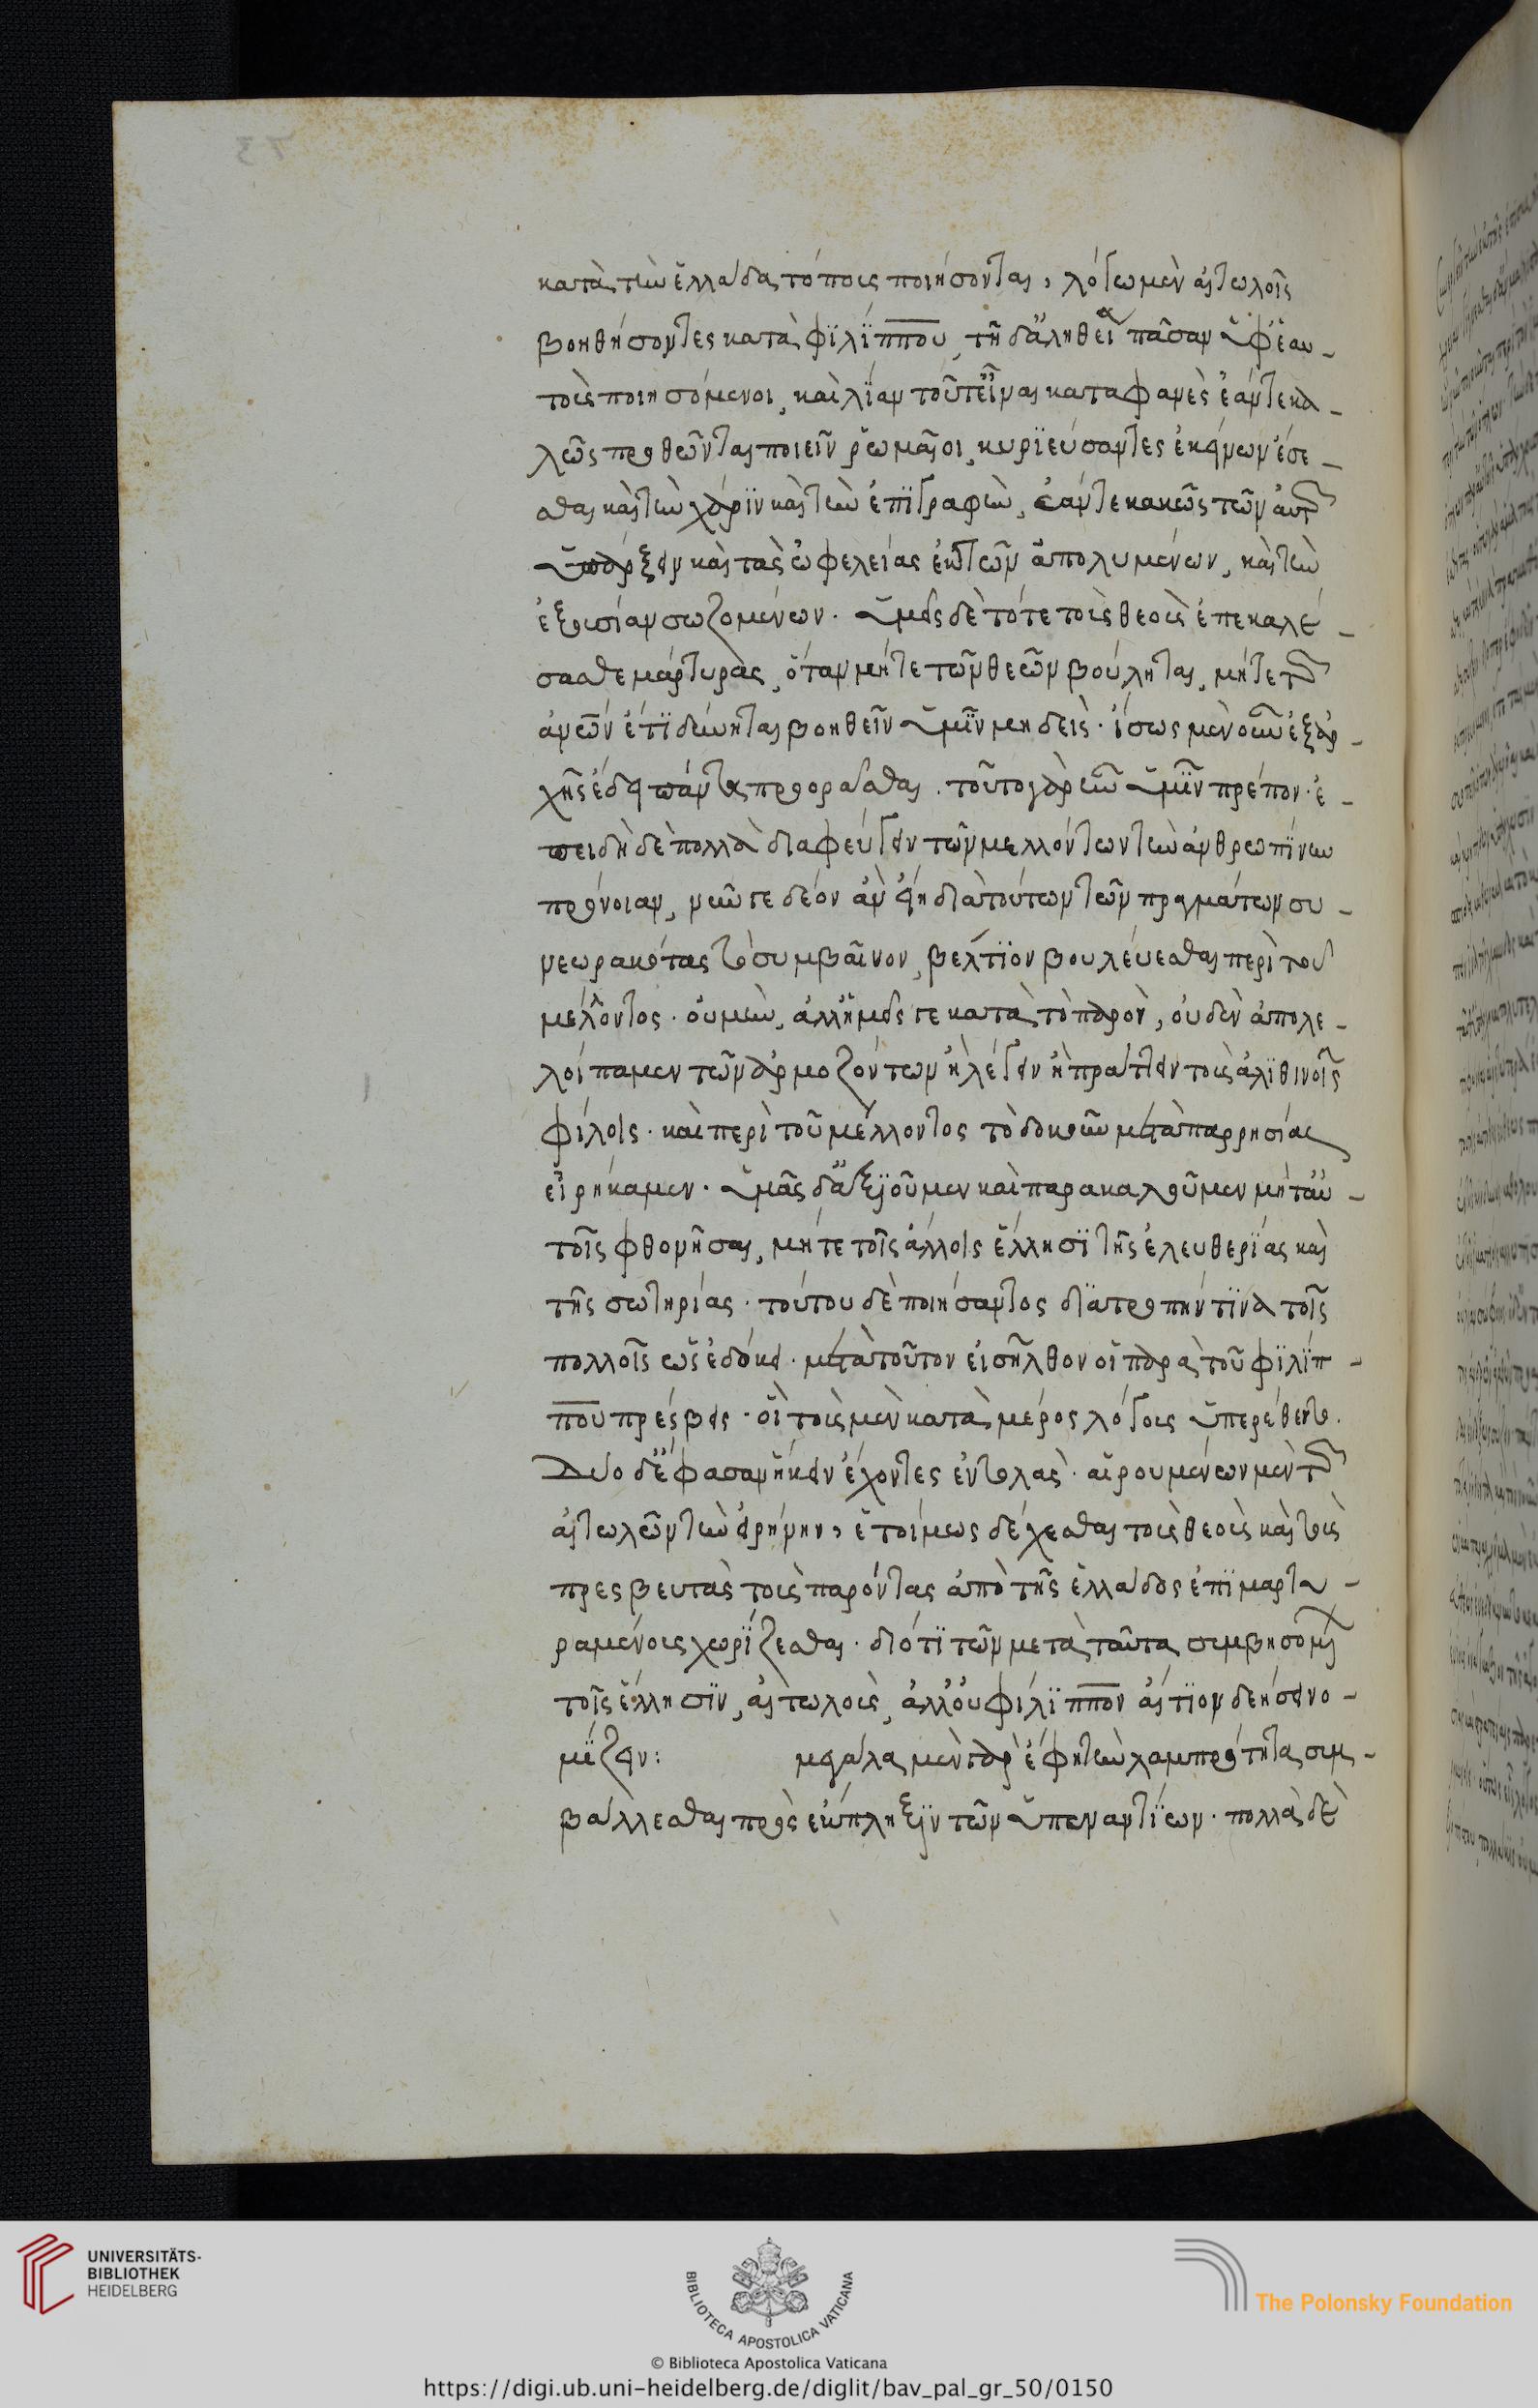 κατὰ τὴν ἑλλάδα τόποις ποιήσονται, λόγω μὲν αἰτωλοῖς
βοηθήσοντες κατὰ φιλίππου, τῆ δ' ἀληθεία πᾶσαν ὑφ' ἑαυ-
τοὺς ποιησόμενοι, καὶ λίαν τοῦτ' εἶναι καταφανὲς ἐάν τε κα-
λῶς προθῶνται ποιεῖν ῥωμαῖοι κυριεύσαντες ἐκείνων ἔσε-
σθαι καὶ τὴν χάριν καὶ τὴν ἐπιγραφὴν, ἐάν τε κακῶς τῶν αὐτῶν
ὑπάρξειν καὶ τὰς ὠφελείας ἐκ τῶν ἀπολυμένων, καὶ τὴν
ἐξουσίαν σωζομένων. ὑμεῖς δὲ τότε τοὺς θεοὺς ἐπεκαλέ-
σασθε μάρτυρας, ὅταν μήτε τῶν θεῶν βούληται, μήτε τῶν
ἀνῶν ἔτι δύνηται βοηθεῖν ὑμῖν μηδείς. ἴσως μὲν οὖν ἐξ ἀρ-
χῆς ἔδει πάντα προορᾶσθαι. τοῦτο γὰρ ἦν ὑμῖν πρέπον. ἐ-
πειδὴ δὲ πολλὰ διαφεύγειν τῶν μελλόντων τὴν ἀνθρωπίνην
πρόνοιαν, νῦν γε δέον ἂν εἴη διὰ τούτων τῶν πραγμάτων συ-
νεωρακότας τὸ συμβαῖνον, βέλτιον βουλεύεσθαι περὶ τοῦ
μέλλοντος. οὐ μὴν, ἀλλ' ἡμεῖς γε κατὰ τὸ παρὸν, οὐδὲν ἀπολε-
λοίπαμεν τῶν ἁρμοζόντων ἢ λέγειν ἢ πράττειν τοῖς ἀλιθινοῖς
φίλοις. καὶ περὶ τοῦ μέλλοντος τὸ δοκοῦν μετὰ παρρησίας
εἰρήκαμεν. ὑμᾶς δ' ἀξιοῦμεν καὶ παρακαλοῦμεν μήτ' αὐ-
τοῖς φθονῆσαι, μήτε τοῖς ἄλλοις ἕλλησι τῆς ἐλευθερίας καὶ
τῆς σωτηρίας. τούτου δὲ ποιήσαντος διατροπήν τινα τοῖς
πολλοῖς ὡς ἐδόκει. μετὰ τοῦτον εἰσῆλθον οἱ παρὰ τοῦ φιλίπ-
που πρέσβεις. οἳ τοὺς μὲν κατὰ μέρος λόγους ὑπερέθεντο.
Δύο δ' ἔφασαν ἥκειν ἔχοντες ἐντολὰς. αἱρουμένων μὲν τῶν
αἰτωλῶν τὴν εἰρήνην, ἑτοίμως δέχεσθαι τοὺς θεοὺς καὶ τοὺς
πρεσβευτὰς τοὺς παρόντας ἀπὸ τῆς ἑλλάδος ἐπιμαρτυ-
ραμένους χωρίζεσθαι. διότι τῶν μετὰ ταῦτα συμβησομένων
τοῖς ἕλλησιν, αἰτωλοὺς, ἀλλ' οὐ φιλίππον αἴτιον δεήσει νο-
μίζειν: μεγάλα μὲν γὰρ ἔφη τὴν λαμπρότητα συμ-
βάλλεσθαι πρὸς ἐκπληξιν τῶν ὑπεναντίων. πολλὰ δὲ
UNIVERSITÄTS-
BIBLIOTHEK
HEIDELBERG
BIBLIOTECA APOSTOLICA VATICANA
The Polonsky Foundation
© Biblioteca Apostolica Vaticana
https://digi.ub.uni-heidelberg.de/diglit/bav_pal_gr_50/0150